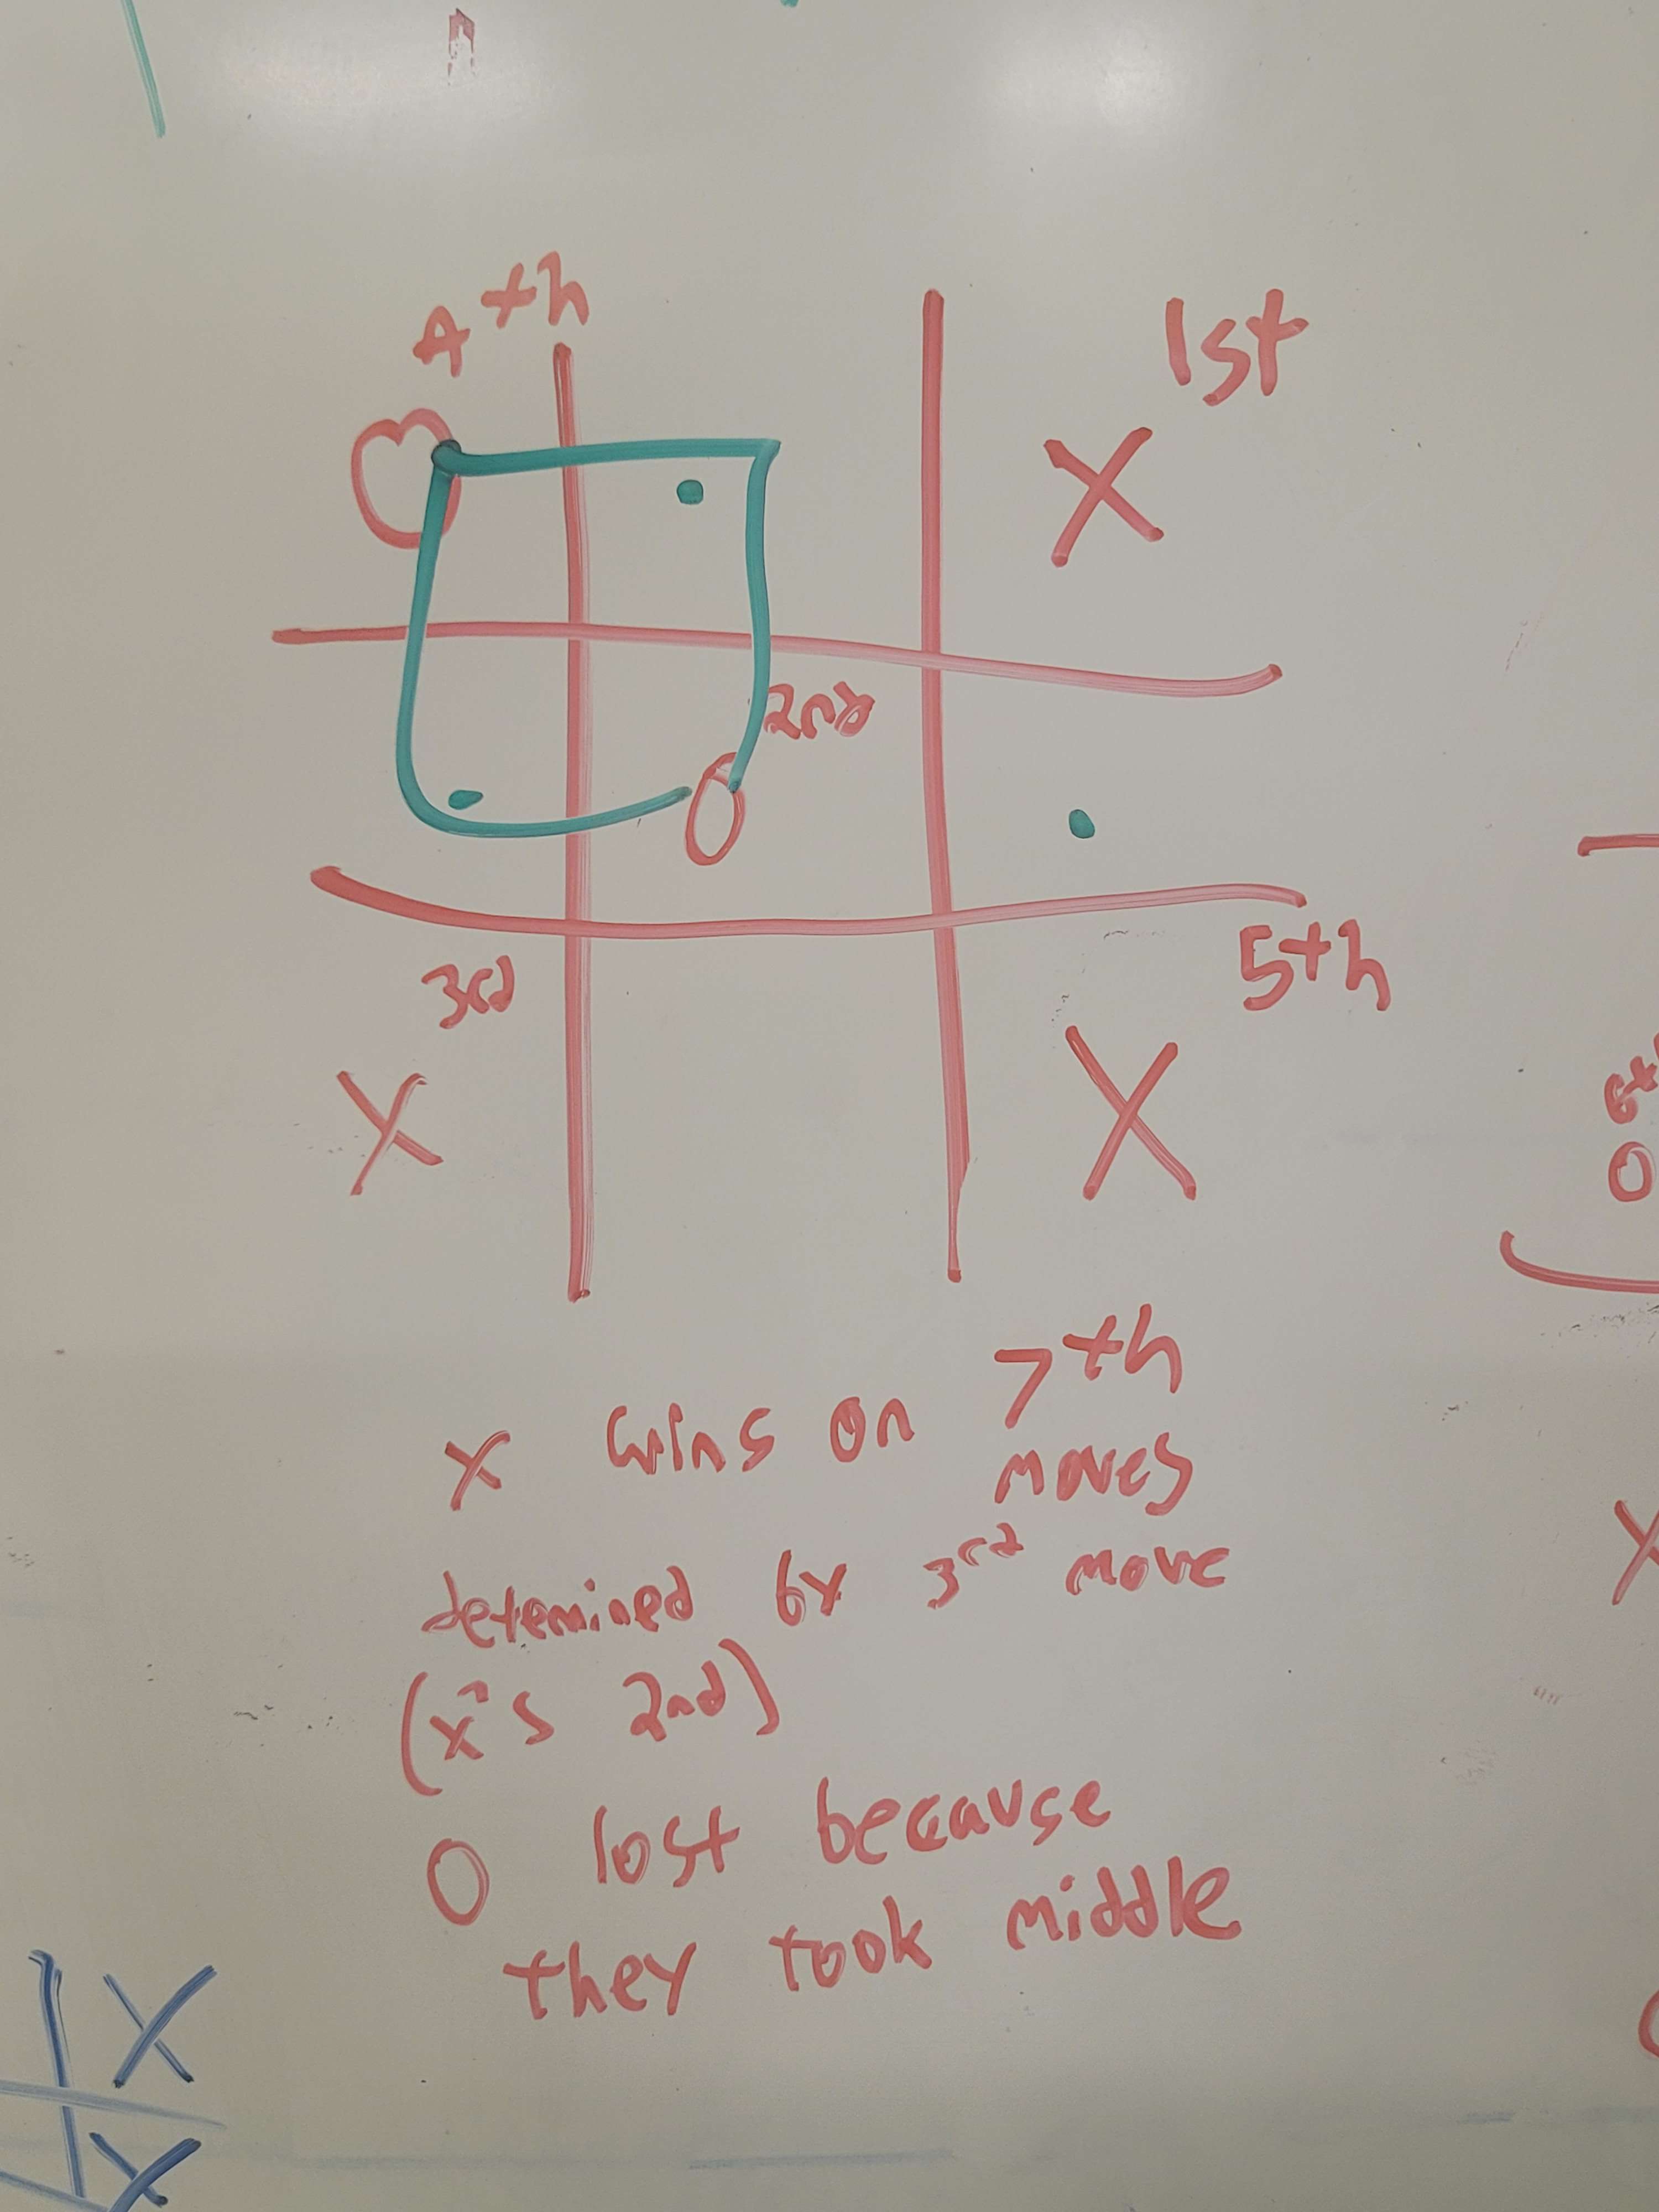 4th
1st
O
X
2nd
O
3rd
5th
X
X
6th
O
X wins on 7th
moves
detemined by 3rd move
(X's 2nd)
O lost because
they took middle
X
X
X